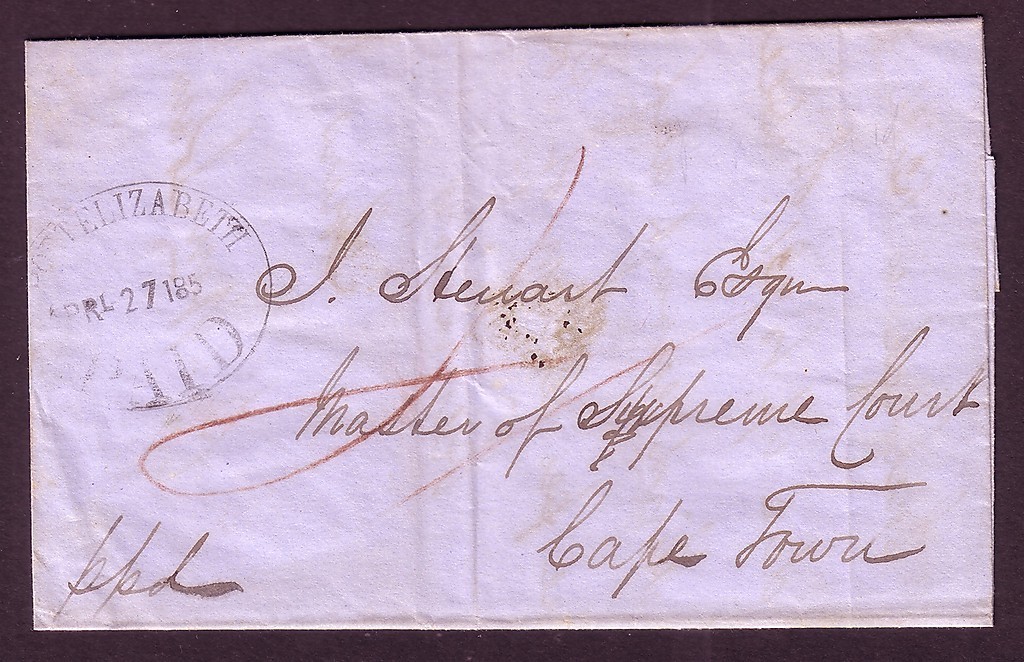 ELIZABETH
APRL 27 185
PAID
J. Stewart Esqr
Master of Supreme Court
Cape Town
ppd